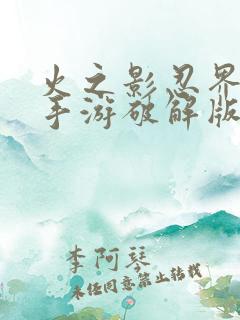 火之影忍界
手游破解版
李阿琴
未经同意禁止转载